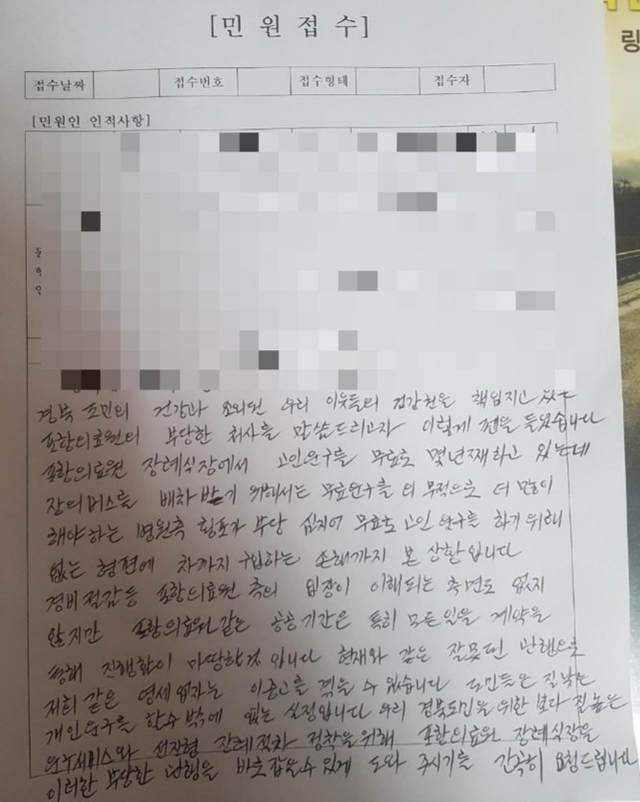 [민 원 접 수]
접수날짜 접수번호 접수형태 접수자
[민원인 인적사항]
경북 도민의 건강과 소외된 우리 이웃들의 건강권을 책임지고 있는
포항의료원의 부당한 처사를 말씀드리고자 이렇게 펜을 들었습니다
포항의료원 장례식장에서 고인운구를 무료로 몇년째하고 있는데
장의버스를 배차 받기 위해서는 무료운구를 더 많이
해야하는 병원측 횡포가 부당 심지어 무료로 고인 운구를 하기위해
없는 형편에 차까지 구입하는 손해까지 본 상황입니다
경비절감등 포항의료원 측의 입장이 이해되는 측면도 없지
않지만 포항의료원같은 공공기간은 특히 모든일을 계약을
통해 진행함이 마땅할것 입니다 현재와 같은 잘못된 난행으로
저희 같은 영세업자는 이중고를 겪을 수 없습니다 도민들은 질낮은
개인운구를 할수 밖에 없는 실정입니다 우리 경북도민을 위한 보다 질높은
운구서비스와 선진형 장례절차 정착을위해 포항의료원 장례식장을
이러한 부당한 난행을 바로잡을수있게 도와 주시기를 간곡히 요청드립니다
링